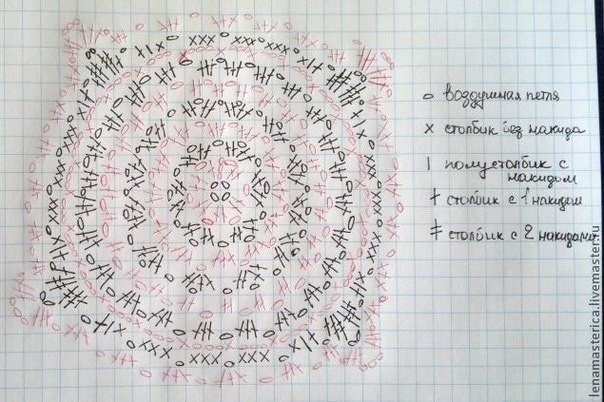 воздушная петля
x столбик без накида
полустолбик с
накидом
столбик с 1 накидом
столбик с 2 накидами
lenamasterica.livemaster.ru